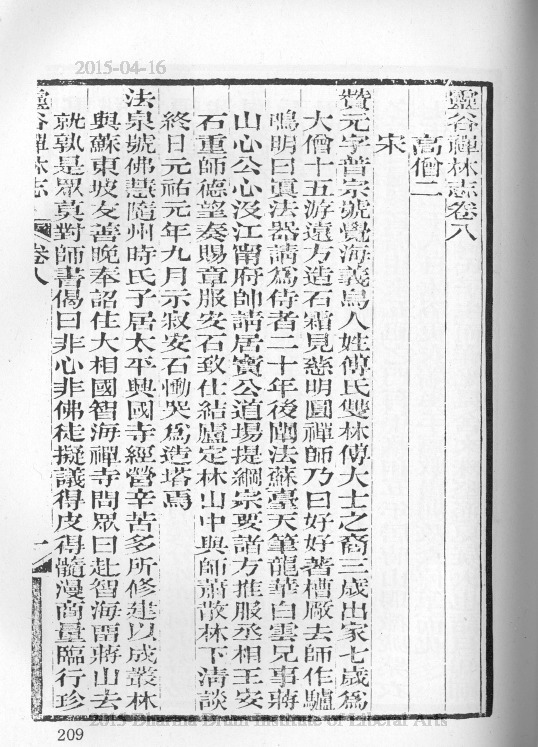 2015-04-16
靈谷禪林志卷八
高僧二
宋
贊元字普宗號覺海義烏人姓傅氏雙林傅大士之裔三歲出家七歲爲
大僧十五游遠方造石霜見慈明圓禪師乃曰好好著槽厰去師作驢
鳴明曰眞法器請爲侍者二十年後闡法蘇臺天筆龍華白雲兄事蔣
山心公心沒江甯府帥請居寶公道場提綱宗要諸方推服丞相王安
石重師德望奏賜章服安石致仕結廬定林山中與師蕭散林下清談
終日元祐元年九月示寂安石慟哭爲造塔焉
法泉號佛慧隨州時氏子居太平興國寺經營辛苦多所修建以成叢林
與蘇東坡友善晚奉詔住大相國智海禪寺問眾曰赴智海畱蔣山去
就孰是眾莫對師書偈曰非心非佛徒擬議得皮得髓漫商量臨行珍
靈谷禪林志
卷八
一
2015 Dharma Drum Institute of Liberal Arts
209